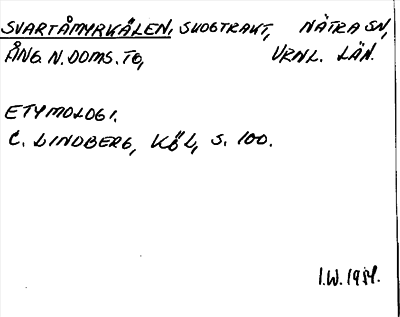 SVARTÅMYRKÄLEN, SKOGTRAKT, NÄTRA SN,
ÅNG. N. DOMS. TG, VRNL. LÄN.
ETYMOLOGI.
C. LINDBERG, KÖL, S. 100.
I.W. 1984.